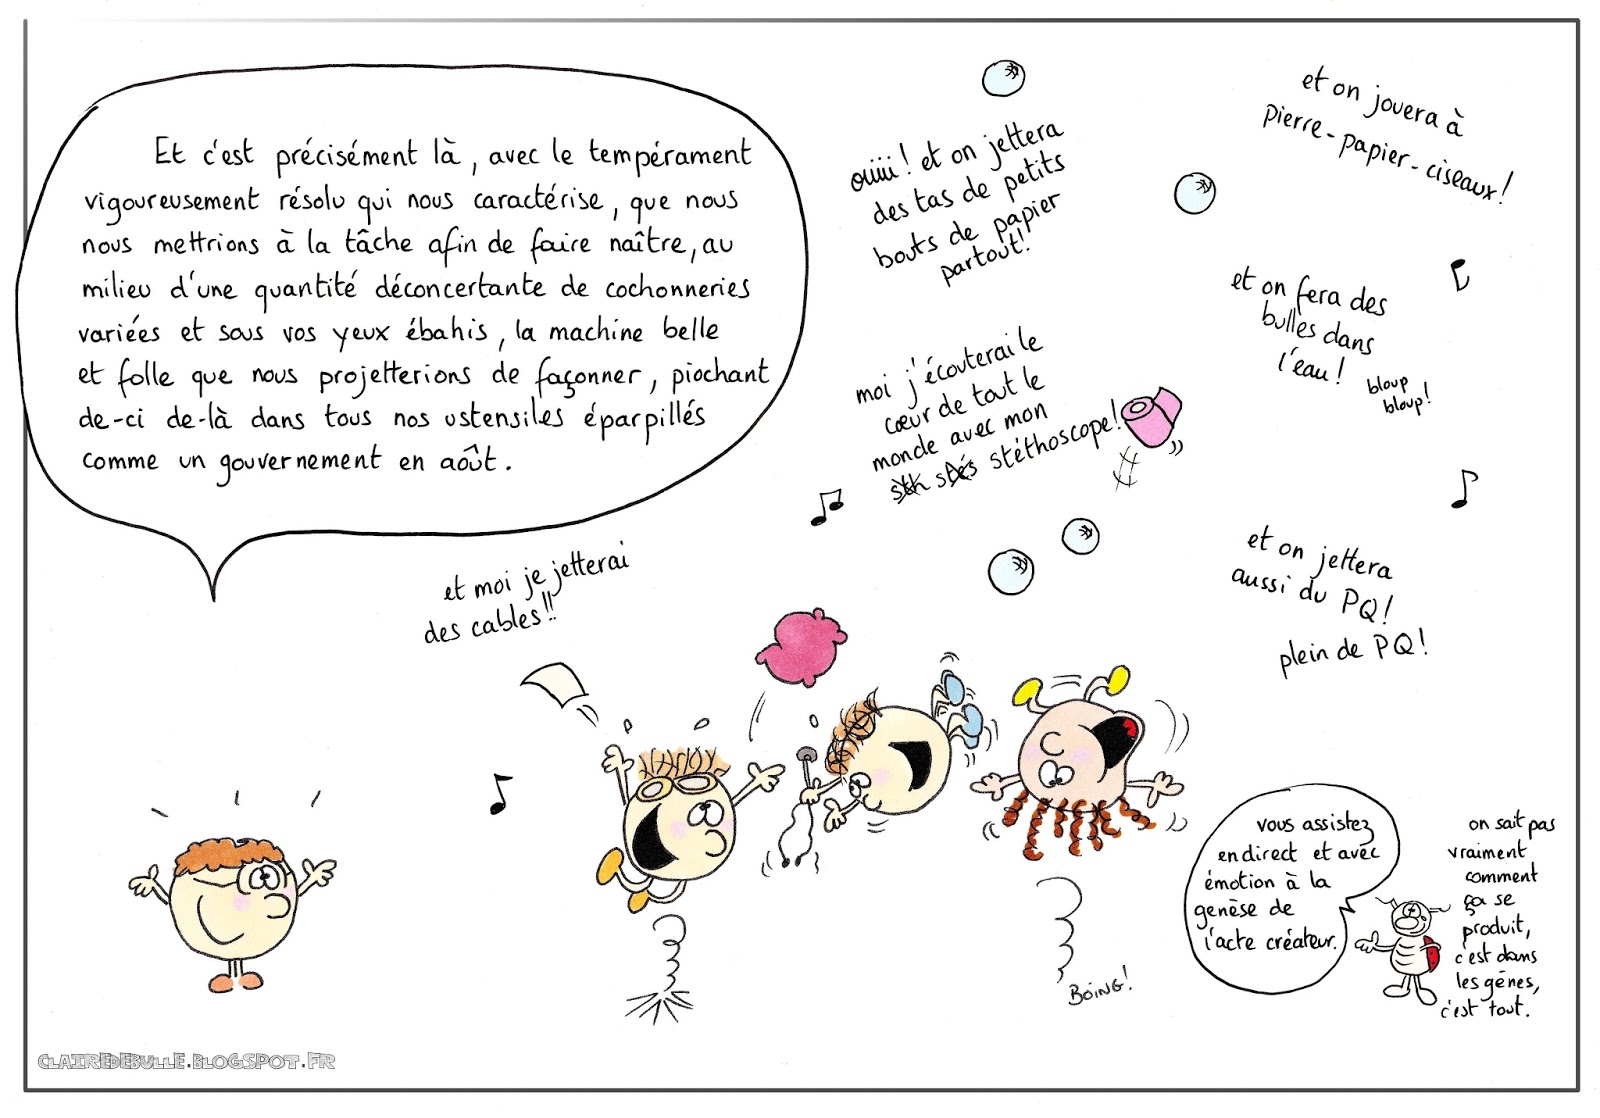 Et c'est précisément là, avec le tempérament
vigoureusement résolu qui nous caractérise, que nous
nous mettrions à la tâche afin de faire naître, au
milieu d'une quantité déconcertante de cochonneries
variées et sous vos yeux ébahis, la machine belle
et folle que nous projetterions de façonner, piochant
de-ci de-là dans tous nos ustensiles éparpillés
comme un gouvernement en août.
et moi je jetterai
des cables!!
ouiiii! et on jettera
des tas de petits
bouts de papier
partout!
moi j'écouterai le
cœur de tout le
monde avec mon
sth stés stéthoscope!
et on jouera à
pierre-papier-ciseaux!
et on fera des
bulles dans
l'eau!
bloup
bloup!
et on jettera
aussi du PQ!
plein de PQ!
BOING!
vous assistez
en direct et avec
émotion à la
genèse de
l'acte créateur.
on sait pas
vraiment
comment
ça se
produit,
c'est dans
les gènes,
c'est tout.
CLAIREDEBULLE.BLOGSPOT.FR